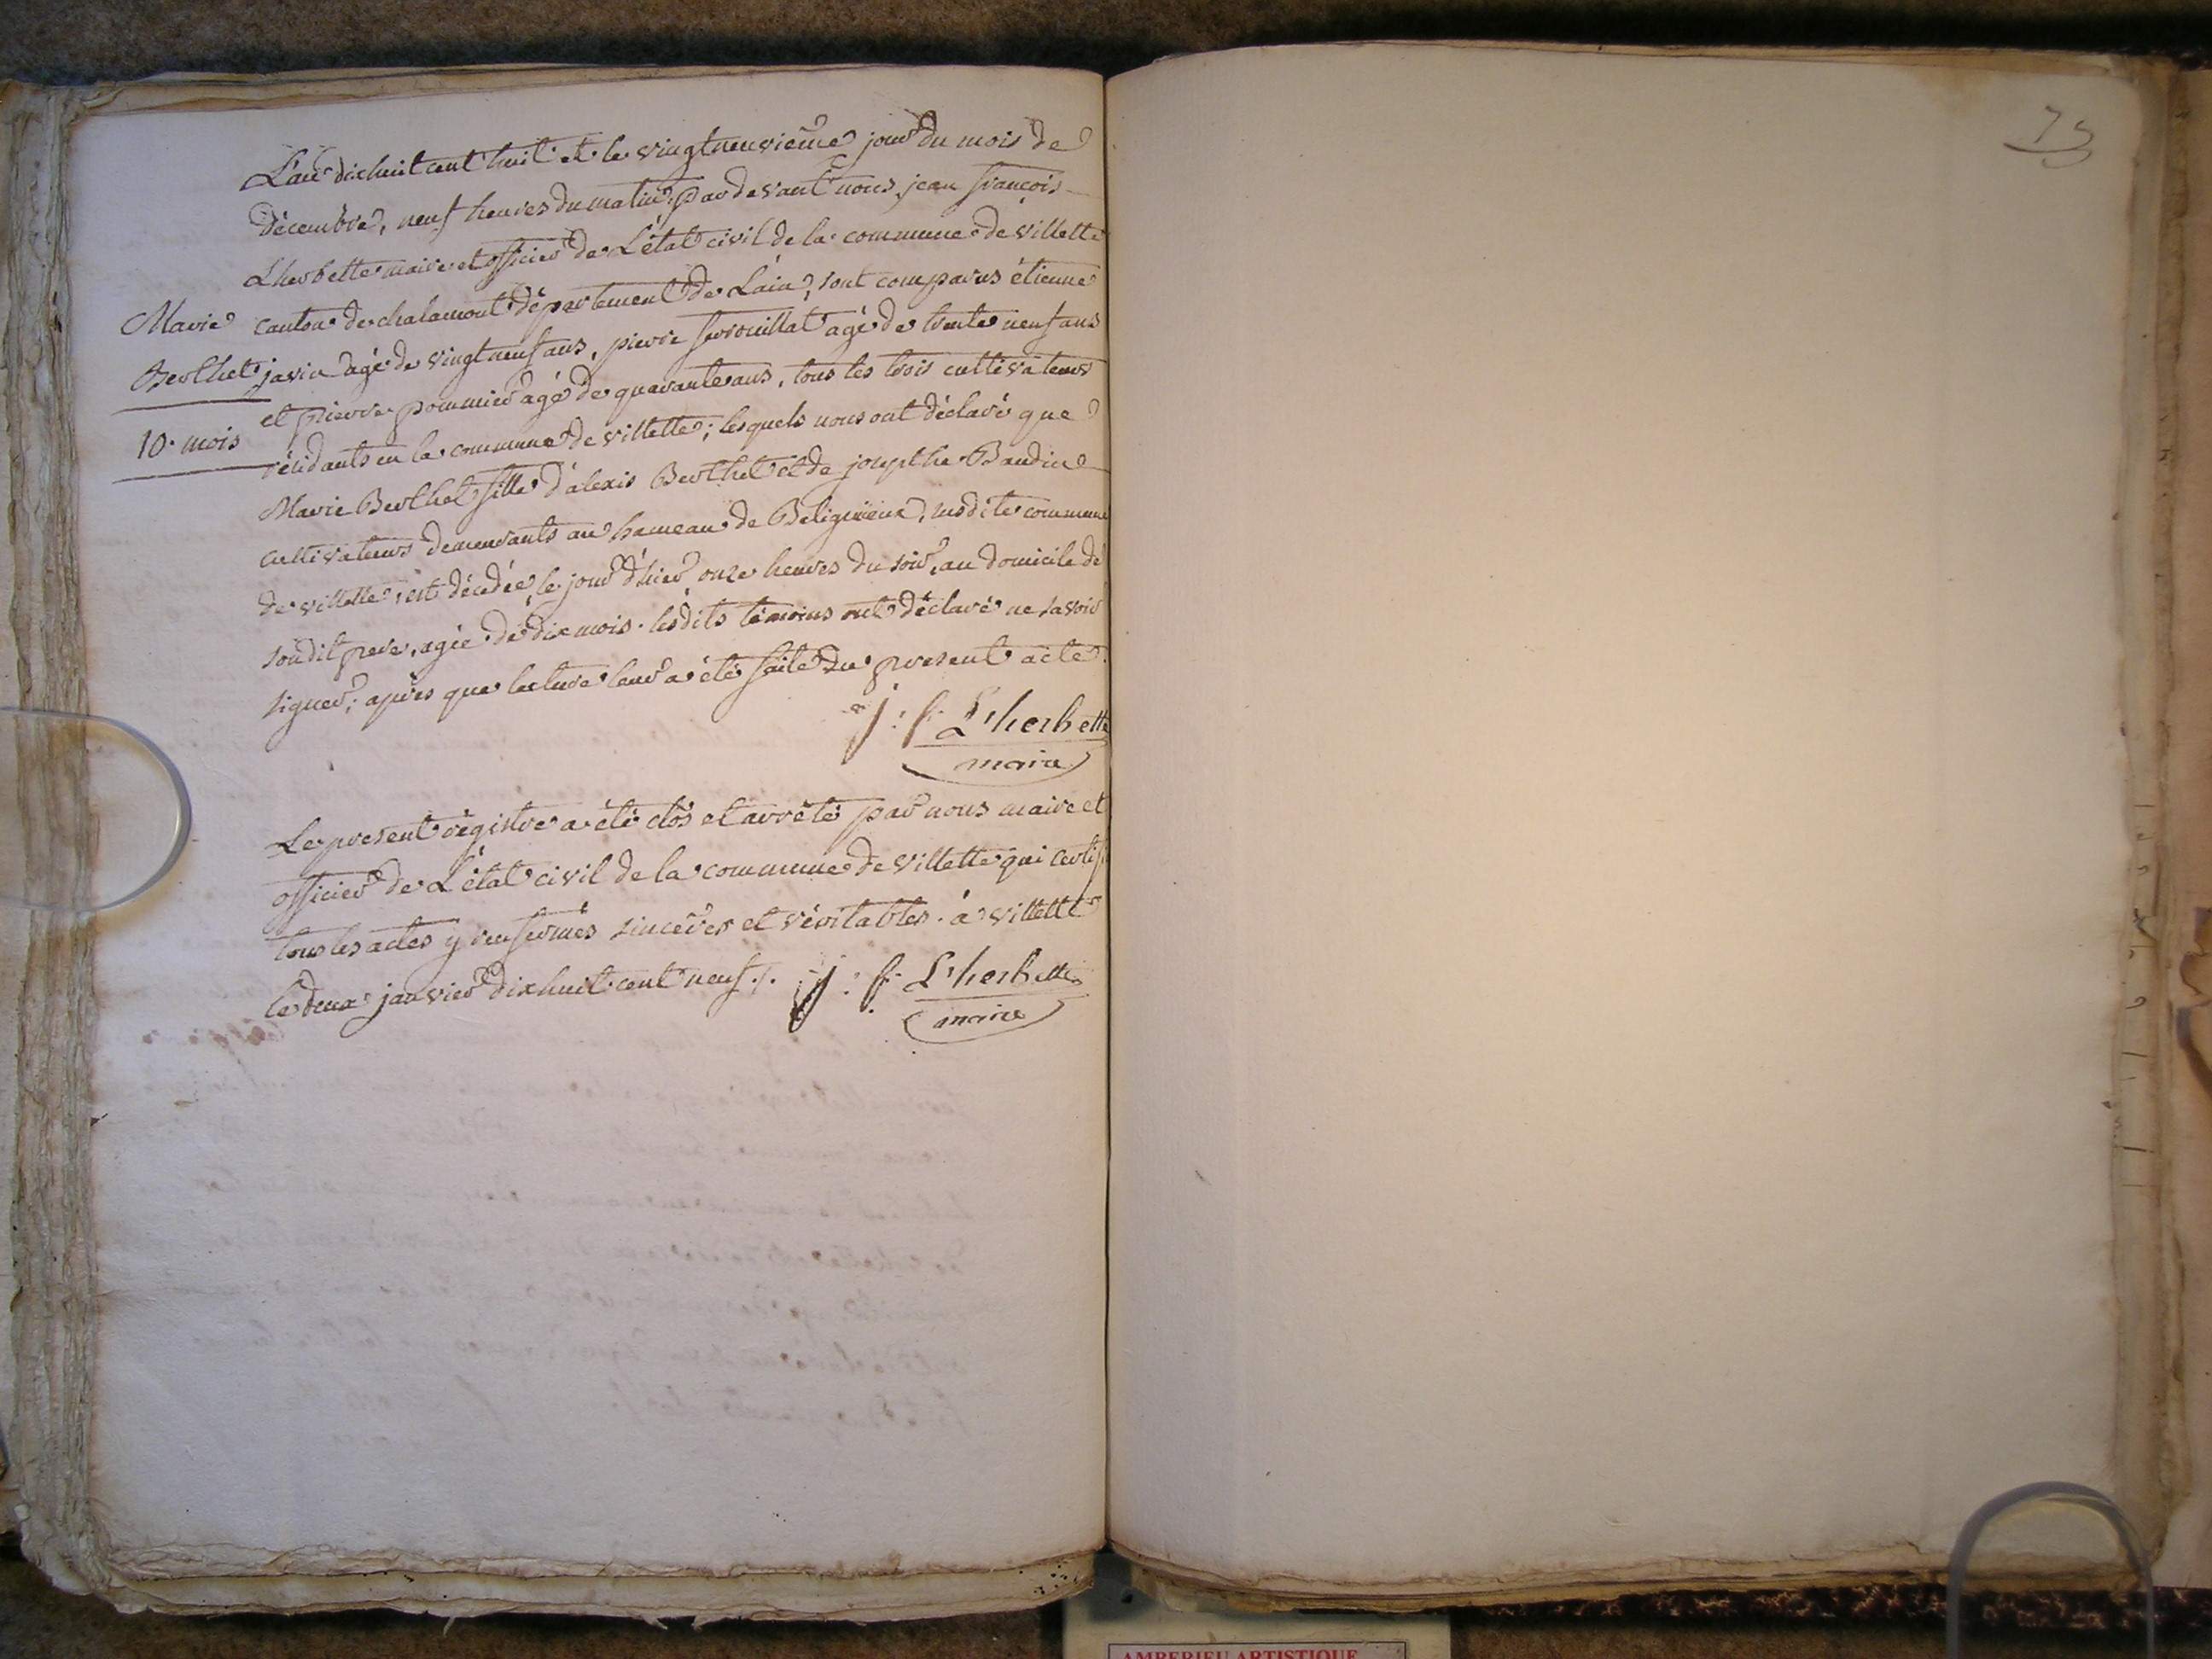 L'an dixhuit cent huit et le vingtneuvieme jour du mois de
décembre, neuf heures du matin, pardevant nous jean françois
Lherbette maire et officier de L'état civil de la commune de villette
canton de chalamont département de L'ain, sont comparus étienne
javin agé de vingtneuf ans, pierre ferrouillat agé de trente neuf ans
et pierre pommier agé de quarante ans, tous les trois cultivateurs
résidants en la commune de villette; lesquels nous ont déclaré que
Marie Berthet fille d'alexis Berthet et de josepthe Baudin
cultivateurs demeurants au hameau de Béligneux, susdite commune
de villette, est décédée le jour d'hier onze heures du soir, au domicile de
son dit pere, agée de dix mois. lesdits témoins ont déclaré ne savoir
signer; après que lecture leur a été faite du present acte.
j: f. L'herbette
maire
Marie
Berthet
10. mois
Le present régistre a été clos et arrêté par nous maire et
officier de L'état civil de la commune de villette qui certif
tous les actes y renfermés sincères et véritables. à villette
le deux janvier dixhuit cent neuf ./. j: f. L'herbette
maire
75
AMBERIEU ARTISTIQUE